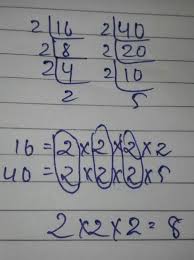 2 16 2 40
2 8 2 20
2 4 2 10
2 5
16 = 2 x 2 x 2 x 2
40 = 2 x 2 x 2 x 5
2 x 2 x 2 = 8